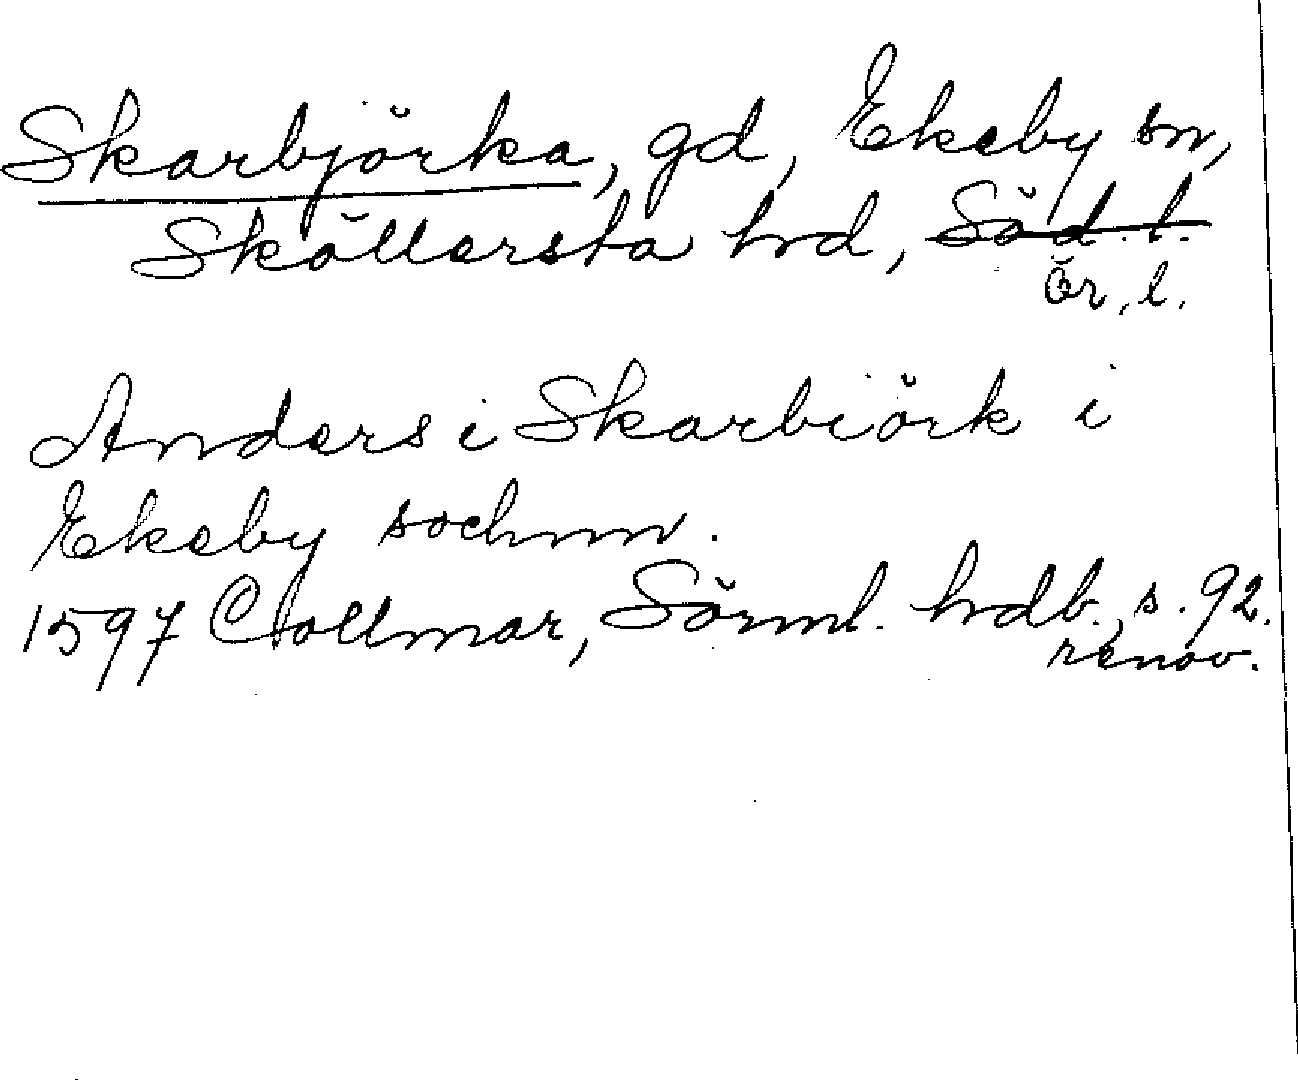 Skarbjörka, gd, Ekeby sn,
Sköllersta hd, Söd. l.
Ör. l.
Anders i Skarbiörk i
Ekeby sochnn.
1597 Collmar, Sörml. hdb., s. 92.
renov.